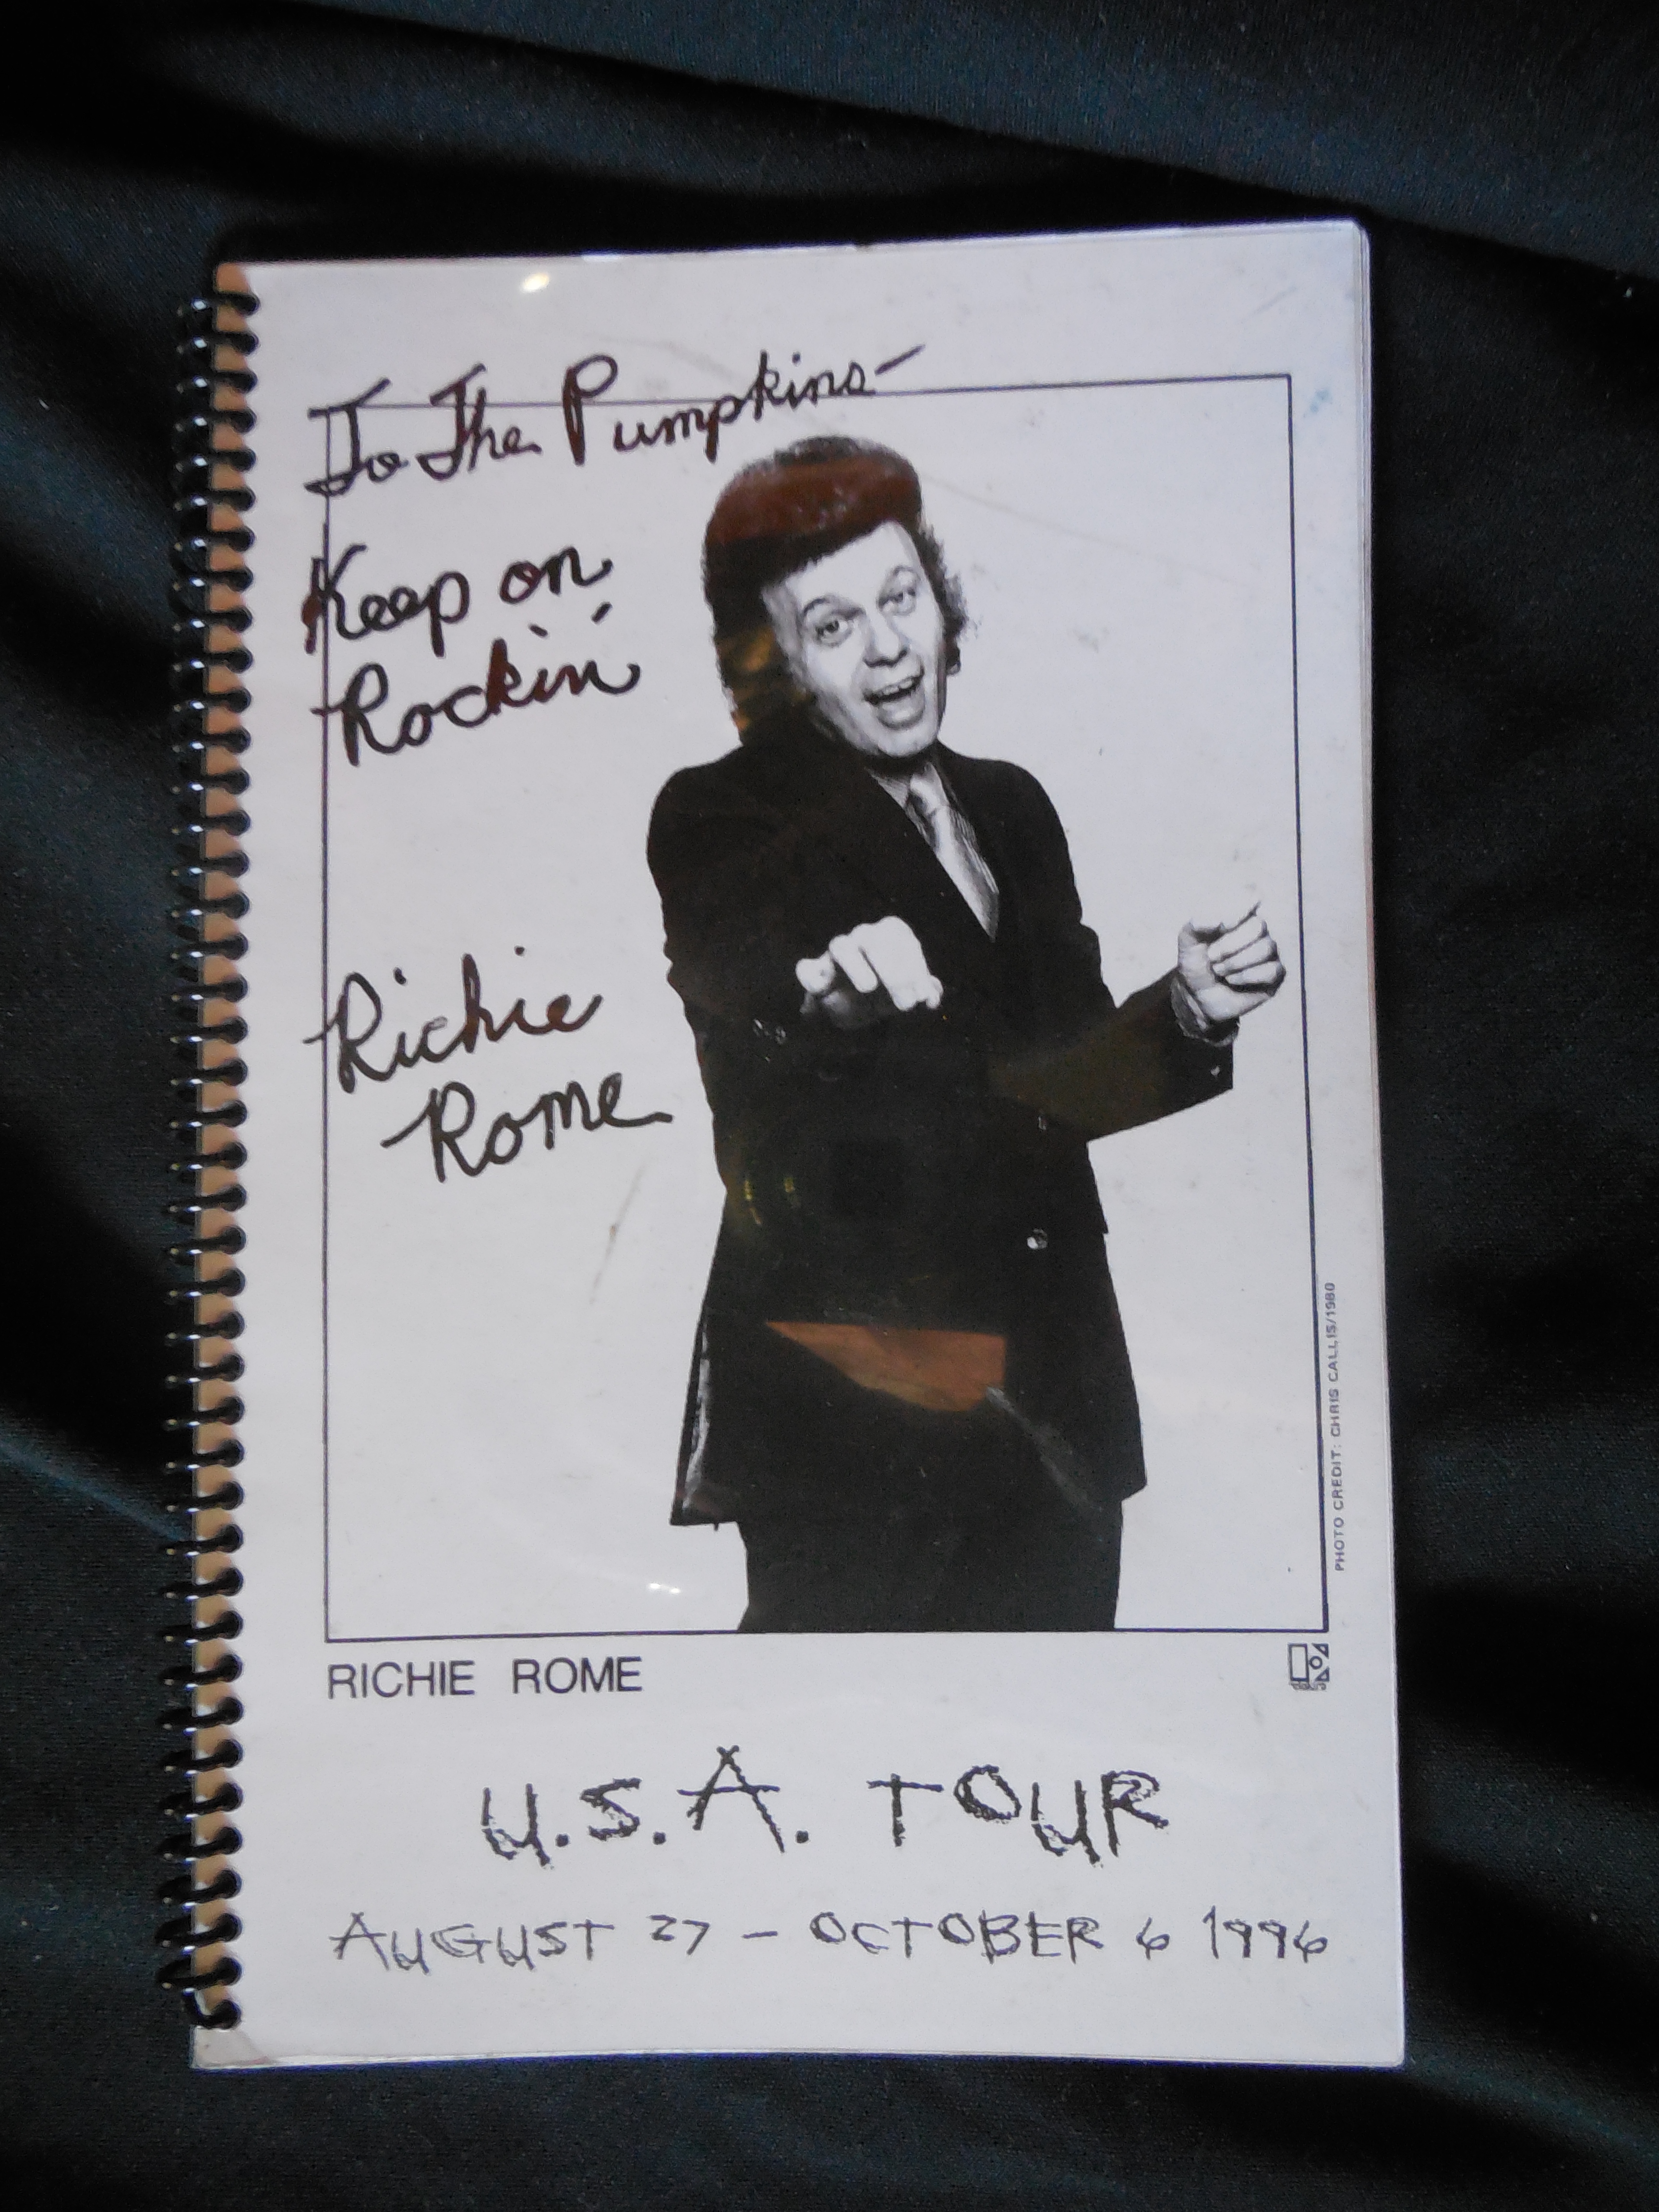 To The Pumpkins-
Keep on
Rockin'
Richie
Rome
PHOTO CREDIT: CHRIS CALLIS/1980
RICHIE ROME
U.S.A. TOUR
AUGUST 27 - OCTOBER 6 1996